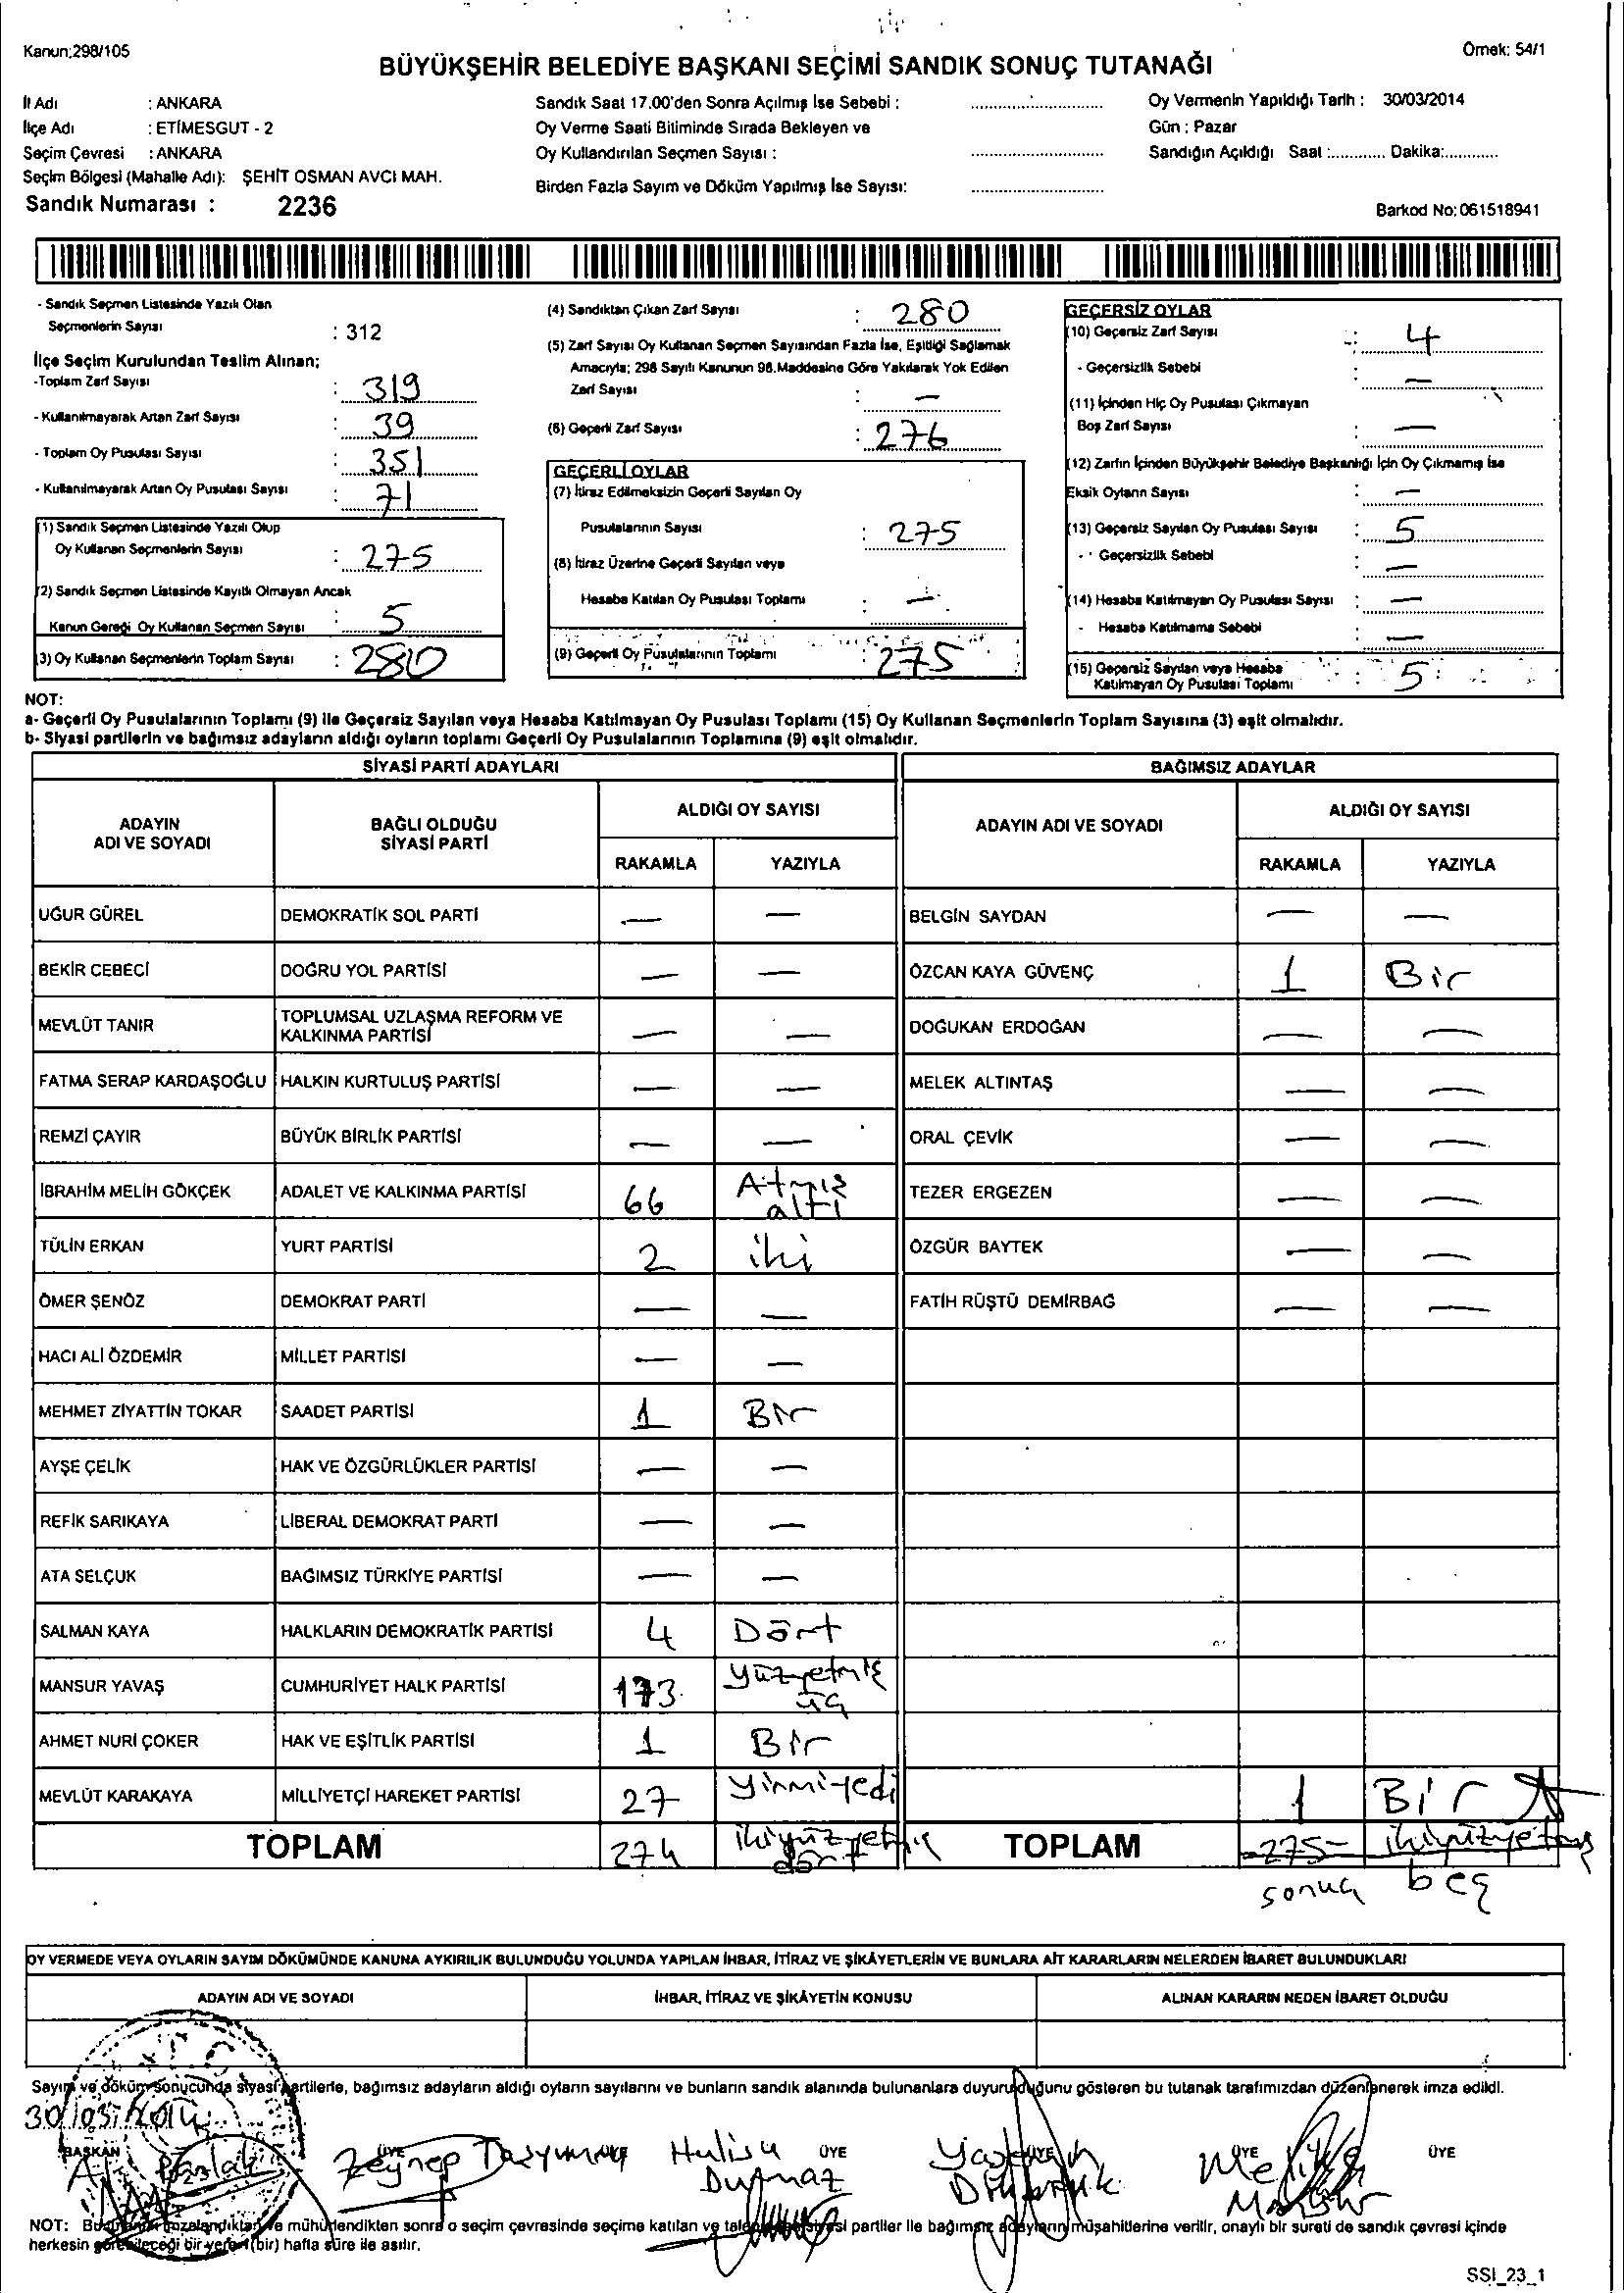 Kanun;298/105
Örnek: 54/1
BÜYÜKŞEHİR BELEDİYE BAŞKANI SEÇİMİ SANDIK SONUÇ TUTANAĞI
İl Adı : ANKARA
İlçe Adı : ETİMESGUT - 2
Seçim Çevresi : ANKARA
Seçim Bölgesi (Mahalle Adı): ŞEHİT OSMAN AVCI MAH.
Sandık Numarası : 2236
Sandık Saat 17.00'den Sonra Açılmış İse Sebebi :
Oy Verme Saati Bitiminde Sırada Bekleyen ve
Oy Kullandırılan Seçmen Sayısı :
Birden Fazla Sayım ve Döküm Yapılmış İse Sayısı:
Oy Vermenin Yapıldığı Tarih : 30/03/2014
Gün : Pazar
Sandığın Açıldığı Saat :............ Dakika:............
Barkod No: 061518941
- Sandık Seçmen Listesinde Yazılı Olan
Seçmenlerin Sayısı : 312
İlçe Seçim Kurulundan Teslim Alınan;
-Toplam Zarf Sayısı : 319
- Kullanılmayarak Artan Zarf Sayısı : 39
- Toplam Oy Pusulası Sayısı : 351
- Kullanılmayarak Artan Oy Pusulası Sayısı : 71
(1) Sandık Seçmen Listesinde Yazılı Olup
Oy Kullanan Seçmenlerin Sayısı : 275
(2) Sandık Seçmen Listesinde Kayıtlı Olmayan Ancak
Kanun Gereği Oy Kullanan Seçmen Sayısı : 5
(3) Oy Kullanan Seçmenlerin Toplam Sayısı : 280
(4) Sandıktan Çıkan Zarf Sayısı : 280
(5) Zarf Sayısı Oy Kullanan Seçmen Sayısından Fazla İse, Eşitliği Sağlamak
Amacıyla; 298 Sayılı Kanunun 98.Maddesine Göre Yakılarak Yok Edilen
Zarf Sayısı : —
(6) Geçerli Zarf Sayısı : 276
GEÇERLİ OYLAR
(7) İtiraz Edilmeksizin Geçerli Sayılan Oy
Pusulalarının Sayısı : 275
(8) İtiraz Üzerine Geçerli Sayılan veya
Hesaba Katılan Oy Pusulası Toplamı : —
(9) Geçerli Oy Pusulalarının Toplamı : 275
GEÇERSİZ OYLAR
(10) Geçersiz Zarf Sayısı : 4
- Geçersizlik Sebebi : —
(11) İçinden Hiç Oy Pusulası Çıkmayan
Boş Zarf Sayısı : —
(12) Zarfın İçinden Büyükşehir Belediye Başkanlığı İçin Oy Çıkmamış İse
Eksik Oyların Sayısı : —
(13) Geçersiz Sayılan Oy Pusulası Sayısı : 5
- Geçersizlik Sebebi : —
(14) Hesaba Katılmayan Oy Pusulası Sayısı : —
- Hesaba Katılmama Sebebi : —
(15) Geçersiz Sayılan veya Hesaba
Katılmayan Oy Pusulası Toplamı : 5
NOT:
a- Geçerli Oy Pusulalarının Toplamı (9) ile Geçersiz Sayılan veya Hesaba Katılmayan Oy Pusulası Toplamı (15) Oy Kullanan Seçmenlerin Toplam Sayısına (3) eşit olmalıdır.
b- Siyasi partilerin ve bağımsız adayların aldığı oyların toplamı Geçerli Oy Pusulalarının Toplamına (9) eşit olmalıdır.
SİYASİ PARTİ ADAYLARI
ADAYIN ADI VE SOYADI
BAĞLI OLDUĞU SİYASİ PARTİ
ALDIĞI OY SAYISI
RAKAMLA YAZIYLA
UĞUR GÜREL DEMOKRATİK SOL PARTİ — —
BEKİR CEBECİ DOĞRU YOL PARTİSİ — —
MEVLÜT TANIR TOPLUMSAL UZLAŞMA REFORM VE KALKINMA PARTİSİ — —
FATMA SERAP KARDAŞOĞLU HALKIN KURTULUŞ PARTİSİ — —
REMZİ ÇAYIR BÜYÜK BİRLİK PARTİSİ — —
İBRAHİM MELİH GÖKÇEK ADALET VE KALKINMA PARTİSİ 66 Atmış altı
TÜLİN ERKAN YURT PARTİSİ 2 iki
ÖMER ŞENÖZ DEMOKRAT PARTİ — —
HACI ALİ ÖZDEMİR MİLLET PARTİSİ — —
MEHMET ZİYATTİN TOKAR SAADET PARTİSİ 1 Bir
AYŞE ÇELİK HAK VE ÖZGÜRLÜKLER PARTİSİ — —
REFİK SARIKAYA LİBERAL DEMOKRAT PARTİ — —
ATA SELÇUK BAĞIMSIZ TÜRKİYE PARTİSİ — —
SALMAN KAYA HALKLARIN DEMOKRATİK PARTİSİ 4 Dört
MANSUR YAVAŞ CUMHURİYET HALK PARTİSİ 173 yüzyetmiş üç
AHMET NURİ ÇOKER HAK VE EŞİTLİK PARTİSİ 1 Bir
MEVLÜT KARAKAYA MİLLİYETÇİ HAREKET PARTİSİ 27 yirmiyedi
TOPLAM 274 ikiyüzyetmiş dört
BAĞIMSIZ ADAYLAR
ADAYIN ADI VE SOYADI
ALDIĞI OY SAYISI
RAKAMLA YAZIYLA
BELGİN SAYDAN — —
ÖZCAN KAYA GÜVENÇ 1 Bir
DOĞUKAN ERDOĞAN — —
MELEK ALTINTAŞ — —
ORAL ÇEVİK — —
TEZER ERGEZEN — —
ÖZGÜR BAYTEK — —
FATİH RÜŞTÜ DEMİRBAĞ — —
1 Bir
TOPLAM 275 ikiyüzyetmiş
sonuç beş
OY VERMEDE VEYA OYLARIN SAYIM DÖKÜMÜNDE KANUNA AYKIRILIK BULUNDUĞU YOLUNDA YAPILAN İHBAR, İTİRAZ VE ŞİKÂYETLERİN VE BUNLARA AİT KARARLARIN NELERDEN İBARET BULUNDUKLARI
ADAYIN ADI VE SOYADI İHBAR, İTİRAZ VE ŞİKÂYETİN KONUSU ALINAN KARARIN NEDEN İBARET OLDUĞU
Sayım ve döküm sonucunda siyasi partilerle, bağımsız adayların aldığı oyların sayılarını ve bunların sandık alanında bulunanlara duyurulduğunu gösteren bu tutanak tarafımızdan düzenlenerek imza edildi.
30/03/2014
BAŞKAN ÜYE ÜYE ÜYE ÜYE ÜYE ÜYE
Zeynep
Hulisu
Durmaz
NOT: Bu tutanak imzalandıktan ve mühürlendikten sonra o seçim çevresinde seçime katılan ve talep eden siyasi partiler ile bağımsız adayların müşahitlerine verilir, onaylı bir sureti de sandık çevresi içinde
herkesin görebileceği bir yere 1 (bir) hafta süre ile asılır.
SSI_23_1